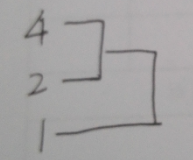 4
2
1